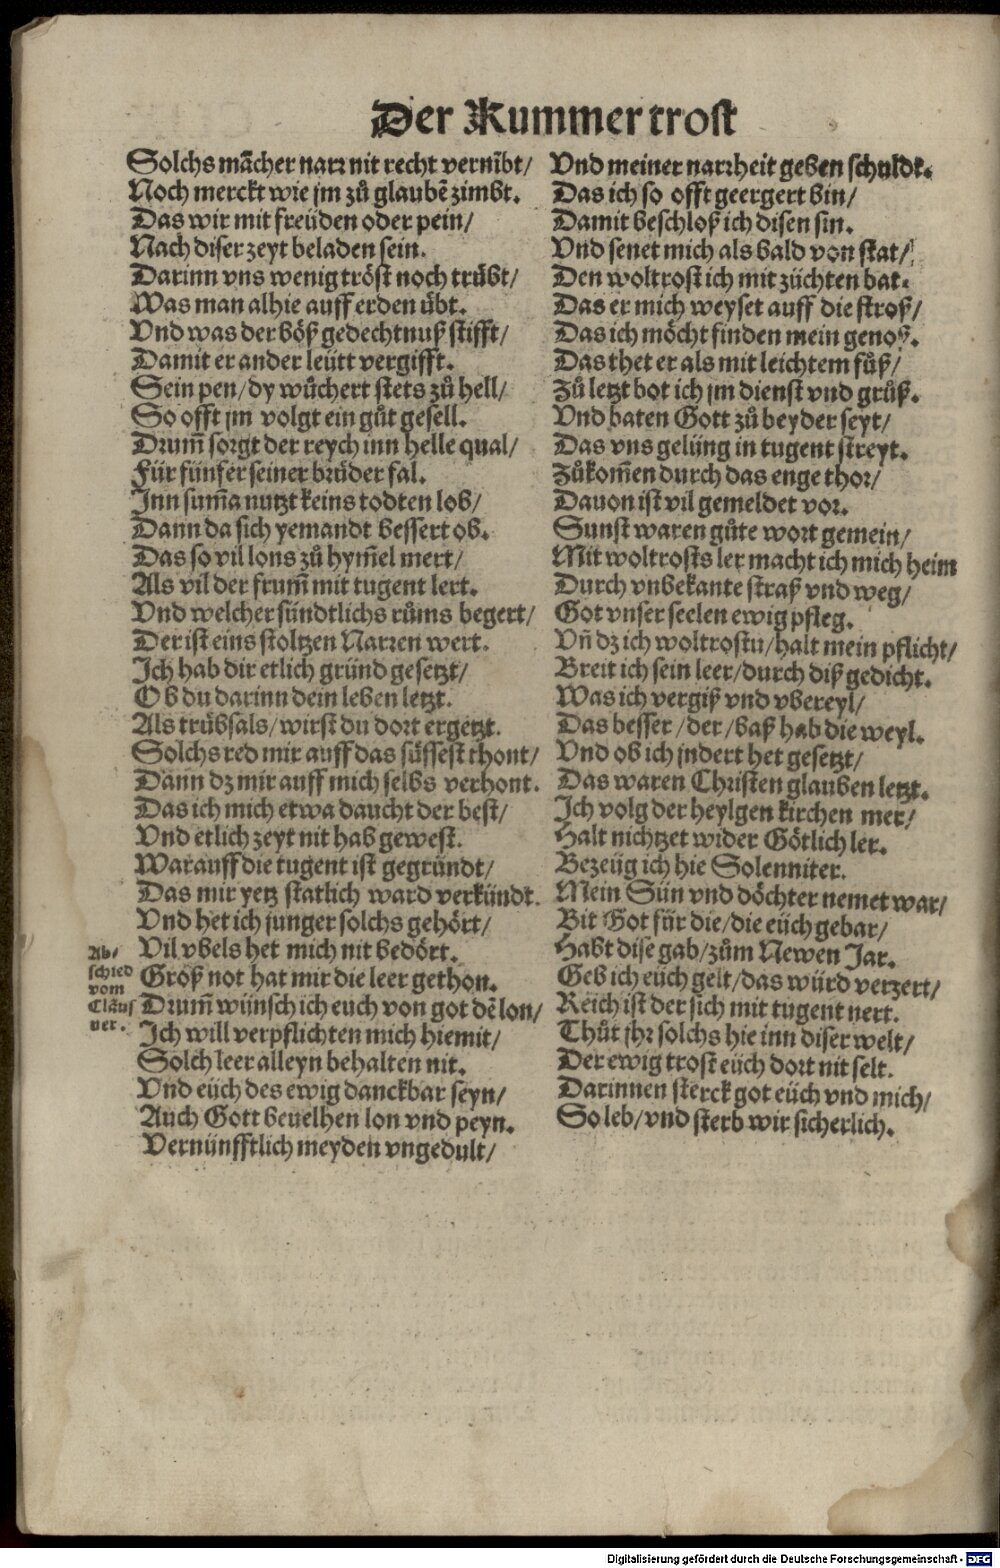 Der Kummertrost
Solchs mãcher narr nit recht vernĩbt/
Noch merckt wie jm zů glaubẽ zimbt.
Das wir mit freüden oder pein/
Nach diser zeyt beladen sein.
Darinn vns wenig tröst noch trübt/
Was man alhie auff erden übt.
Vnd was der böß gedechtnuß stifft/
Damit er ander leütt vergifft.
Sein pen/dy wůchert stets zů hell/
So offt jm volgt ein gůt gesell.
Drum̃ sorgt der reych inn helle qual/
Für fünfer seiner brüder fal.
Inn sum̃a nutzt keins todten lob/
Dann da sich yemandt bessert ob.
Das so vil lons zů hym̃el mert/
Als vil der frum̃ mit tugent lert.
Vnd welcher sündtlichs růms begert/
Der ist eins stoltzen Narren wert.
Ich hab dir etlich gründ gesetzt/
Ob du darinn dein leben letzt.
Als trübsals/wirst du dort ergetzt.
Solchs red mir auff das süssest thont/
Dann dz mir auff mich selbs verhont.
Das ich mich etwa daucht der best/
Vnd etlich zeyt nit hab gewest.
Warauff die tugent ist gegründt/
Das mir yetz statlich ward verkündt.
Vnd het ich junger solchs gehört/
Vil vbels het mich nit bedört.
Größ not hat mir die leer gethon.
Drum̃ wünsch ich euch von got dẽ lon/
Ich will verpflichten mich hiemit/
Solch leer alleyn behalten nit.
Vnd eüch des ewig danckbar seyn/
Auch Gott beuelhen lon vnd peyn.
Vernünfftlich meyden vngedult/
Ab/
schied
vom
Claus
ner.
Vnd meiner narrheit geben schuldt.
Das ich so offt geergert bin/
Damit beschloß ich disen sin.
Vnd senet mich als bald von stat/
Den woltrost ich mit züchten bat.
Das er mich weyset auff die stroß/
Das ich möcht finden mein genoß.
Das thet er als mit leichtem fůß/
Zů letzt bot ich jm dienst vnd grůß.
Vnd baten Gott zů beyder seyt/
Das vns gelüng in tugent streyt.
Zůkom̃en durch das enge thor/
Dauon ist vil gemeldet vor.
Sunst waren gůte wort gemein/
Mit woltrosts ler macht ich mich heim
Durch vnbekante straß vnd weg/
Got vnser seelen ewig pfleg.
Vñ dz ich woltrostu/halt mein pflicht/
Breit ich sein leer/durch diß gedicht.
Was ich vergiß vnd vbereyl/
Das besser/der/baß hab die weyl.
Vnd ob ich jndert het gesetzt/
Das waren Christen glauben letzt.
Ich volg der heylgen kirchen mer/
Halt nichtzet wider Götlich ler.
Bezeüg ich hie Solenniter.
Mein Sün vnd döchter nemet war/
Bit Got für die/die eüch gebar/
Habt dise gab/zům Newen Jar.
Geb ich eüch gelt/das würd verzert/
Reich ist der sich mit tugent nert.
Thůt jhr solchs hie inn diser welt/
Der ewig trost eüch dort nit felt.
Darinnen sterck got eüch vnd mich/
So leb/vnd sterb wir sicherlich.
Digitalisierung gefördert durch die Deutsche Forschungsgemeinschaft - DFG